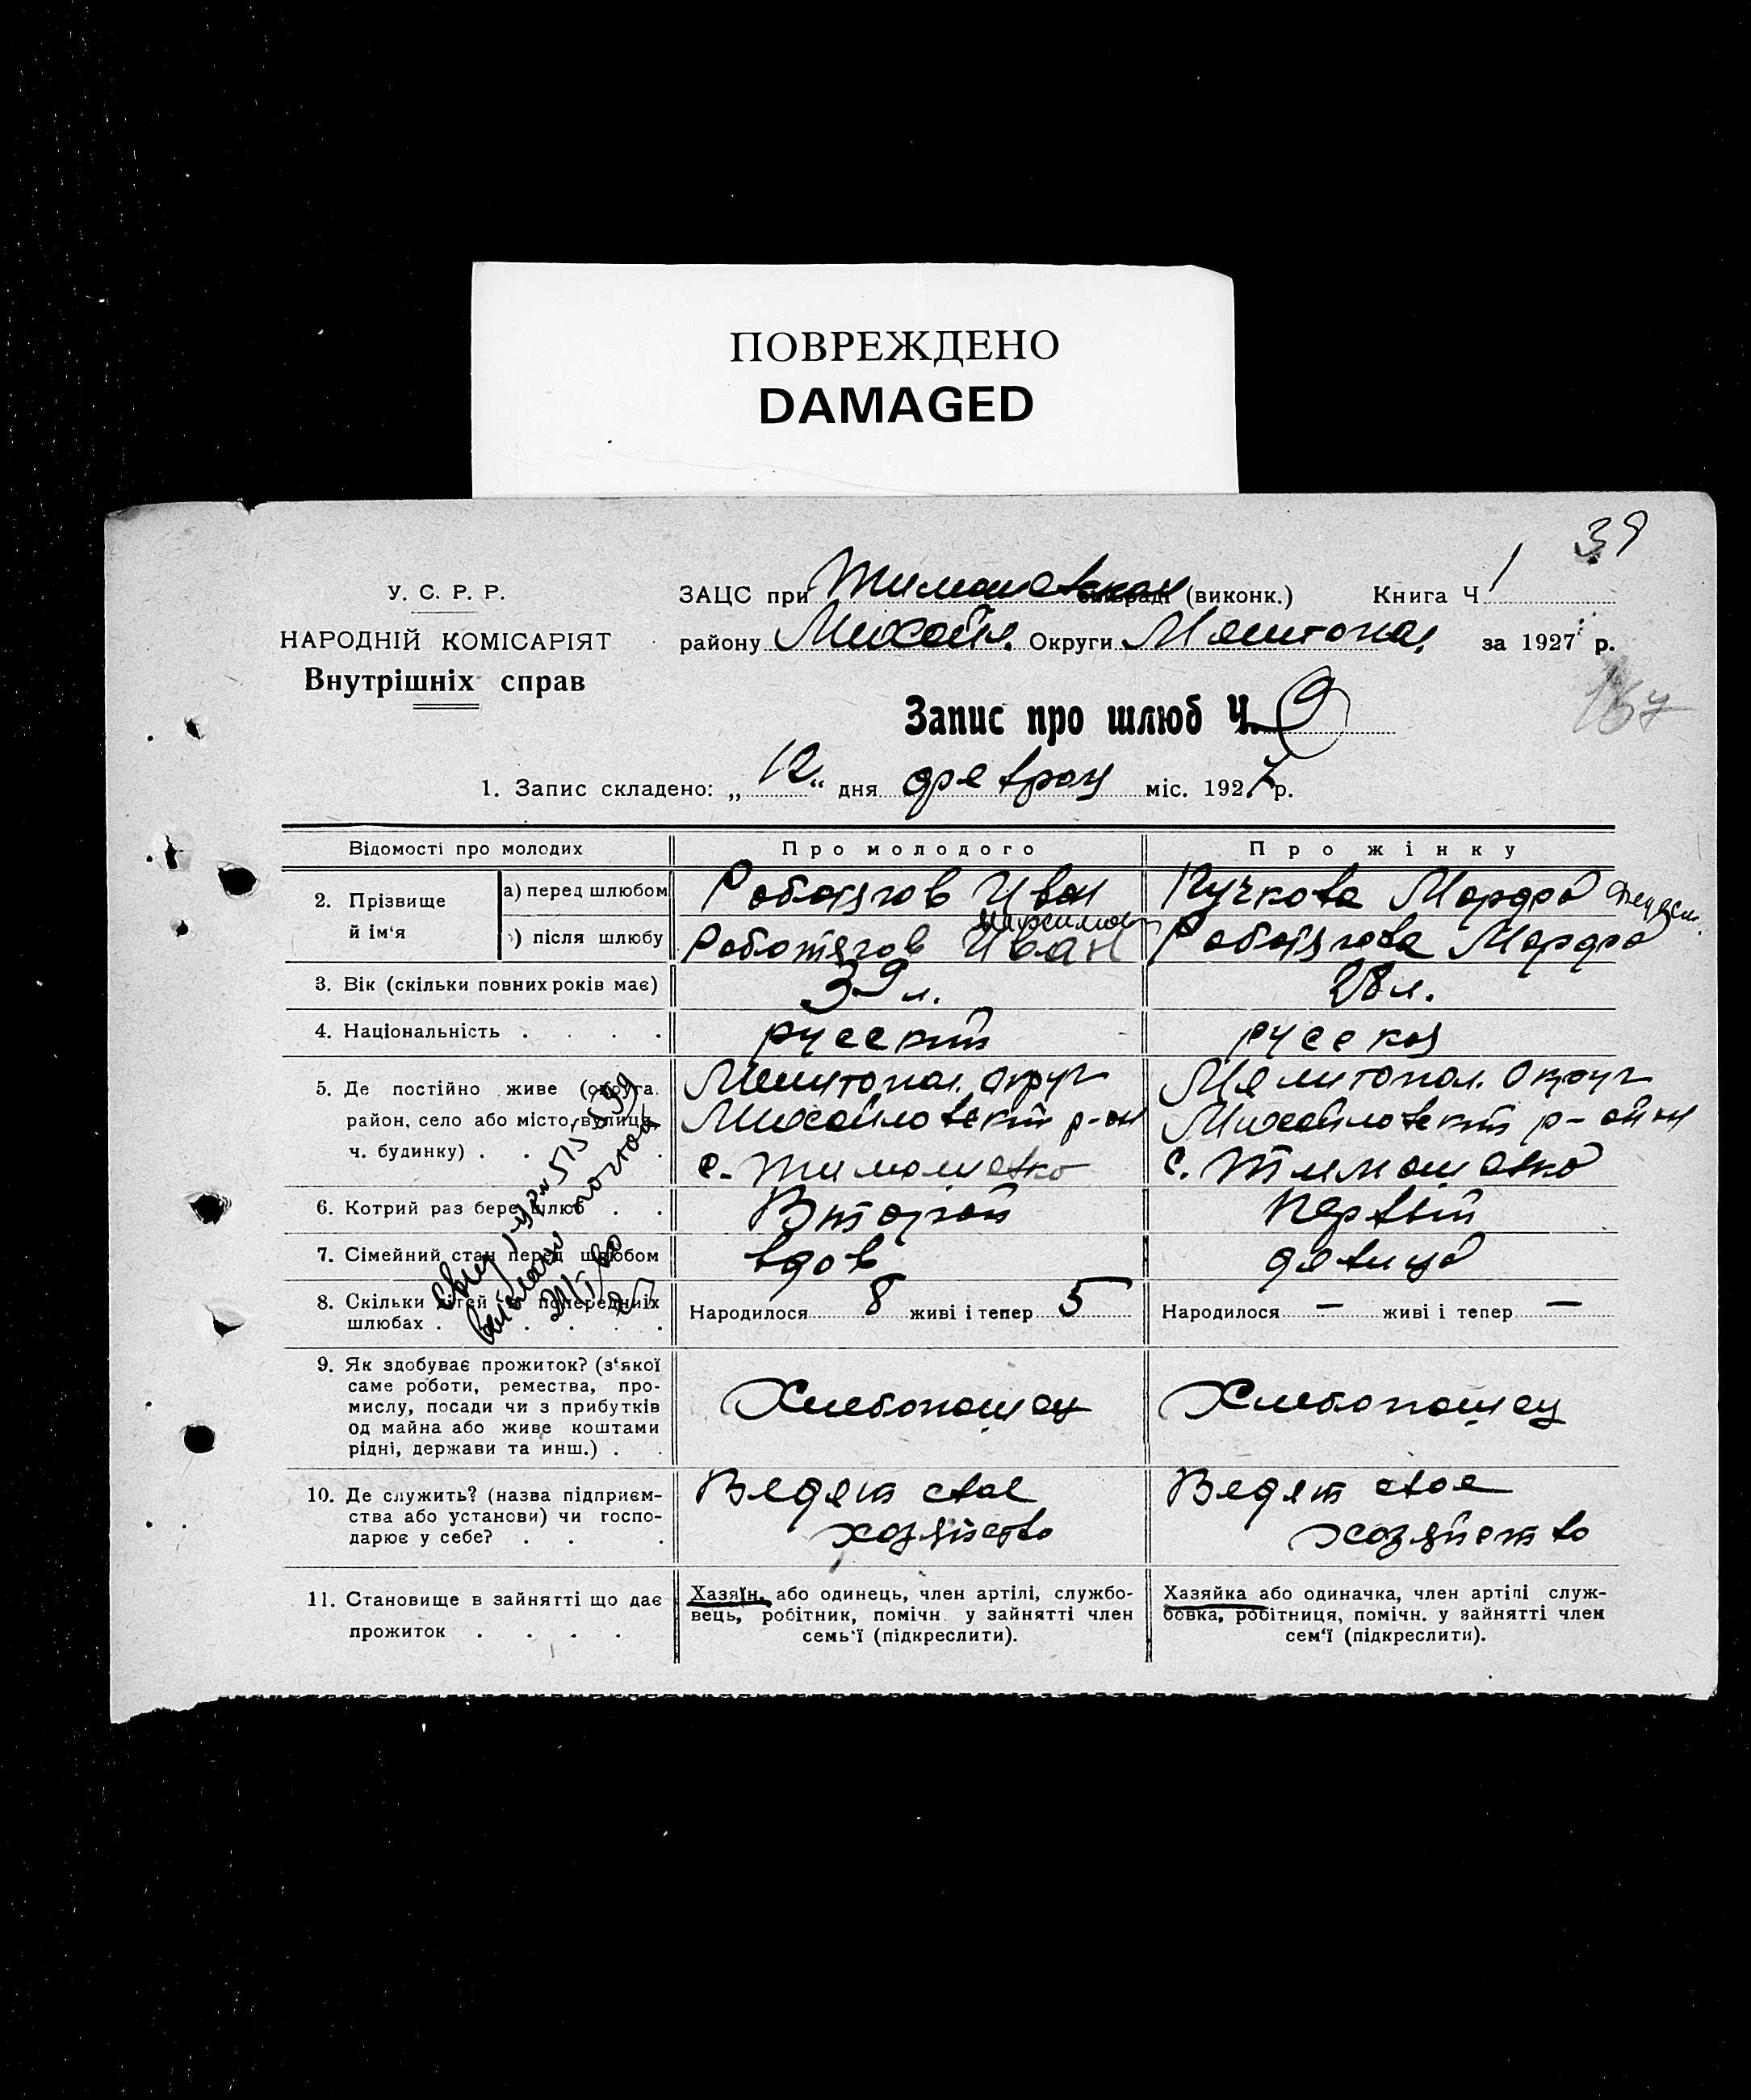 ПОВРЕЖДЕНО
DAMAGED
39
У. С. Р. Р.
НАРОДНІЙ КОМІСАРІЯТ
Внутрішніх справ
ЗАЦС при Тимошевском (виконк.) Книга Ч 1
району Михайл. Округи Мелитопол. за 1927 р.
167
Запис про шлюб Ч. 9
1. Запис складено: „ 12 “ дня февраля міс. 1927 р.
Відомості про молодих Про молодого Про жінку
2. Прізвище й ім'я
а) перед шлюбом Роботягов Иван Пучкова Марфа
Максимов
) після шлюбу Роботягов Иван Роботягова Марфа
3. Вік (скільки повних років має) 39 л. 28 л.
4. Національність . . . . русский русская
5. Де постійно живе (округа район, село або місто, вулиця, ч. будинку) . . . .
Мелитопол. округ Мелитопол. Округ
Михайловский р-он Михайловский р-он
с. Тимошевка с. Тимошевка
6. Котрий раз бере шлюб . . Второй Первый
7. Сімейний стан перед шлюбом вдов девица
8. Скільки дітей в попередніх шлюбах . . . . Народилося 8 живі і тепер 5 Народилося — живі і тепер —
9. Як здобуває прожиток? (з'якої
саме роботи, ремества, про-
мислу, посади чи з прибутків
од майна або живе коштами
рідні, держави та инш.) . .
Хлебопашец Хлебопашец
10. Де служить? (назва підприєм-
ства або установи) чи госпо-
дарює у себе? . . .
Ведет свое Ведет свое
хозяйство хозяйство
11. Становище в зайнятті що дає
прожиток . . . .
Хазяїн, або одинець, член артілі, службо-
вець, робітник, помічн. у зайнятті член
семь'ї (підкреслити).
Хазяйка або одиначка, член артілі служ-
бовка, робітниця, помічн. у зайнятті член
сем'ї (підкреслити).